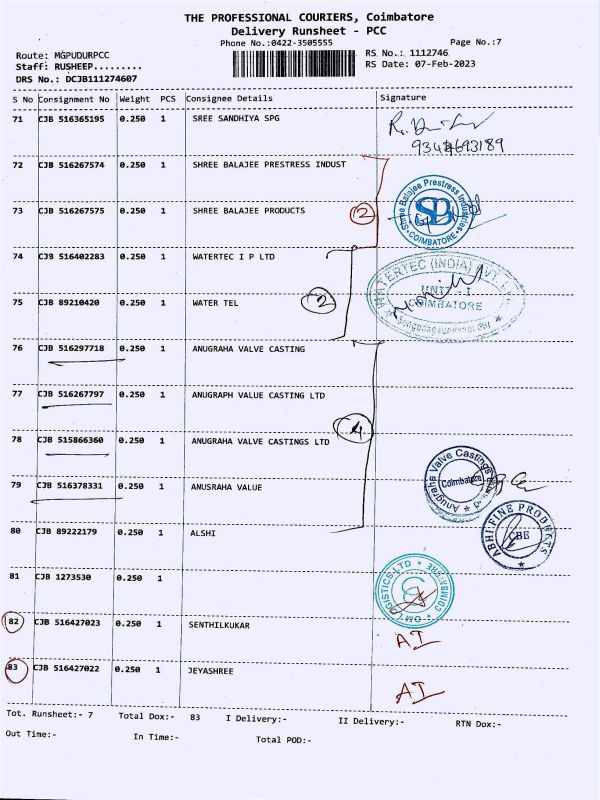 THE PROFESSIONAL COURIERS, Coimbatore
Delivery Runsheet - PCC
Phone No.:0422-3505555 Page No.:7
Route: MGPUDURPCC RS No.: 1112746
Staff: RUSHEEP......... RS Date: 07-Feb-2023
DRS No.: DCJB111274607
S No Consignment No Weight PCS Consignee Details Signature
71 CJB 516365195 0.250 1 SREE SANDHIYA SPG
72 CJB 516267574 0.250 1 SHREE BALAJEE PRESTRESS INDUST
73 CJB 516267575 0.250 1 SHREE BALAJEE PRODUCTS 2
Shree Balajee Prestress Industries
SB
COIMBATORE
74 CJB 516402283 0.250 1 WATERTEC I P LTD
75 CJB 89210420 0.250 1 WATER TEL 2
WATERTEC (INDIA) PVT. LTD.
UNIT - I
COIMBATORE
76 CJB 516297718 0.250 1 ANUGRAHA VALVE CASTING
77 CJB 516267797 0.250 1 ANUGRAPH VALUE CASTING LTD
78 CJB 515866360 0.250 1 ANUGRAHA VALVE CASTINGS LTD 4
79 CJB 516378331 0.250 1 ANUSRAHA VALUE
Anugraha Valve Castings
Coimbatore
80 CJB 89222179 0.250 1 ALSHI
ABHI FINE PRODUKTS
CBE
81 CJB 1273530 0.250 1
OM LOGISTICS LTD
COIMBATORE
82 CJB 516427023 0.250 1 SENTHILKUKAR AI
83 CJB 516427022 0.250 1 JEYASHREE AI
Tot. Runsheet:- 7 Total Dox:- 83 I Delivery:- II Delivery:- RTN Dox:-
Out Time:- In Time:- Total POD:-